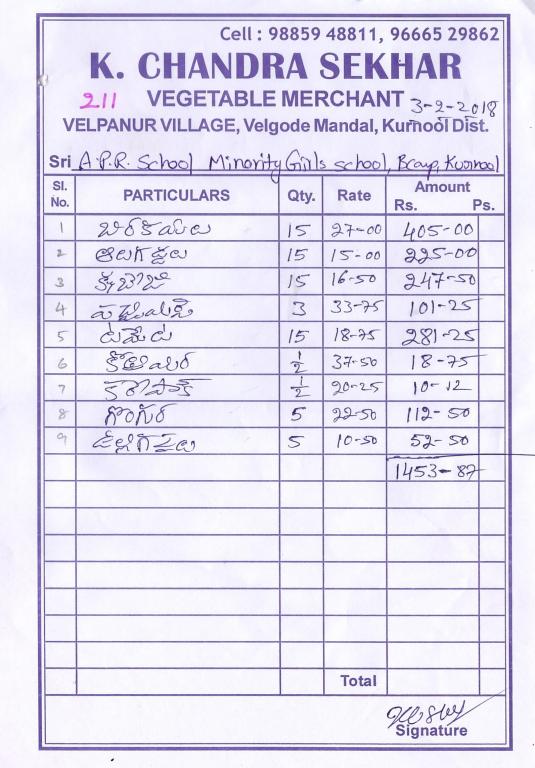 Cell : 98859 48811, 96665 29862
K. CHANDRA SEKHAR
211 VEGETABLE MERCHANT 3-2-2018
VELPANUR VILLAGE, Velgode Mandal, Kurnool Dist.
Sri A.P.R. School Minority Girls school, Kurnool
Sl. No. PARTICULARS Qty. Rate Amount Rs. Ps.
1 బీరకాయలు 15 27-00 405-00
2 ఆలుగడ్డలు 15 15-00 225-00
3 క్యాబేజి 15 16-50 247-50
4 3 33-75 101-25
5 టమేట 15 18-75 281-25
6 కొతిమీర 1/2 37-50 18-75
7 కరివేపాక్ 1/2 20-25 10-12
8 గోంగూర 5 22-50 112-50
9 ఉల్లిగడ్డలు 5 10-50 52-50
1453-87
Total
Signature